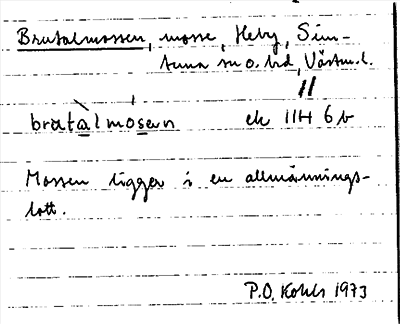 Brutalmossen, mosse, Heby, Sim-
tuna sn o. hd, Västm. l.
//
brutalmosen ek 11H 6 b
Mossen ligger i en allmännings-
lott.
P.O. Kohls 1973